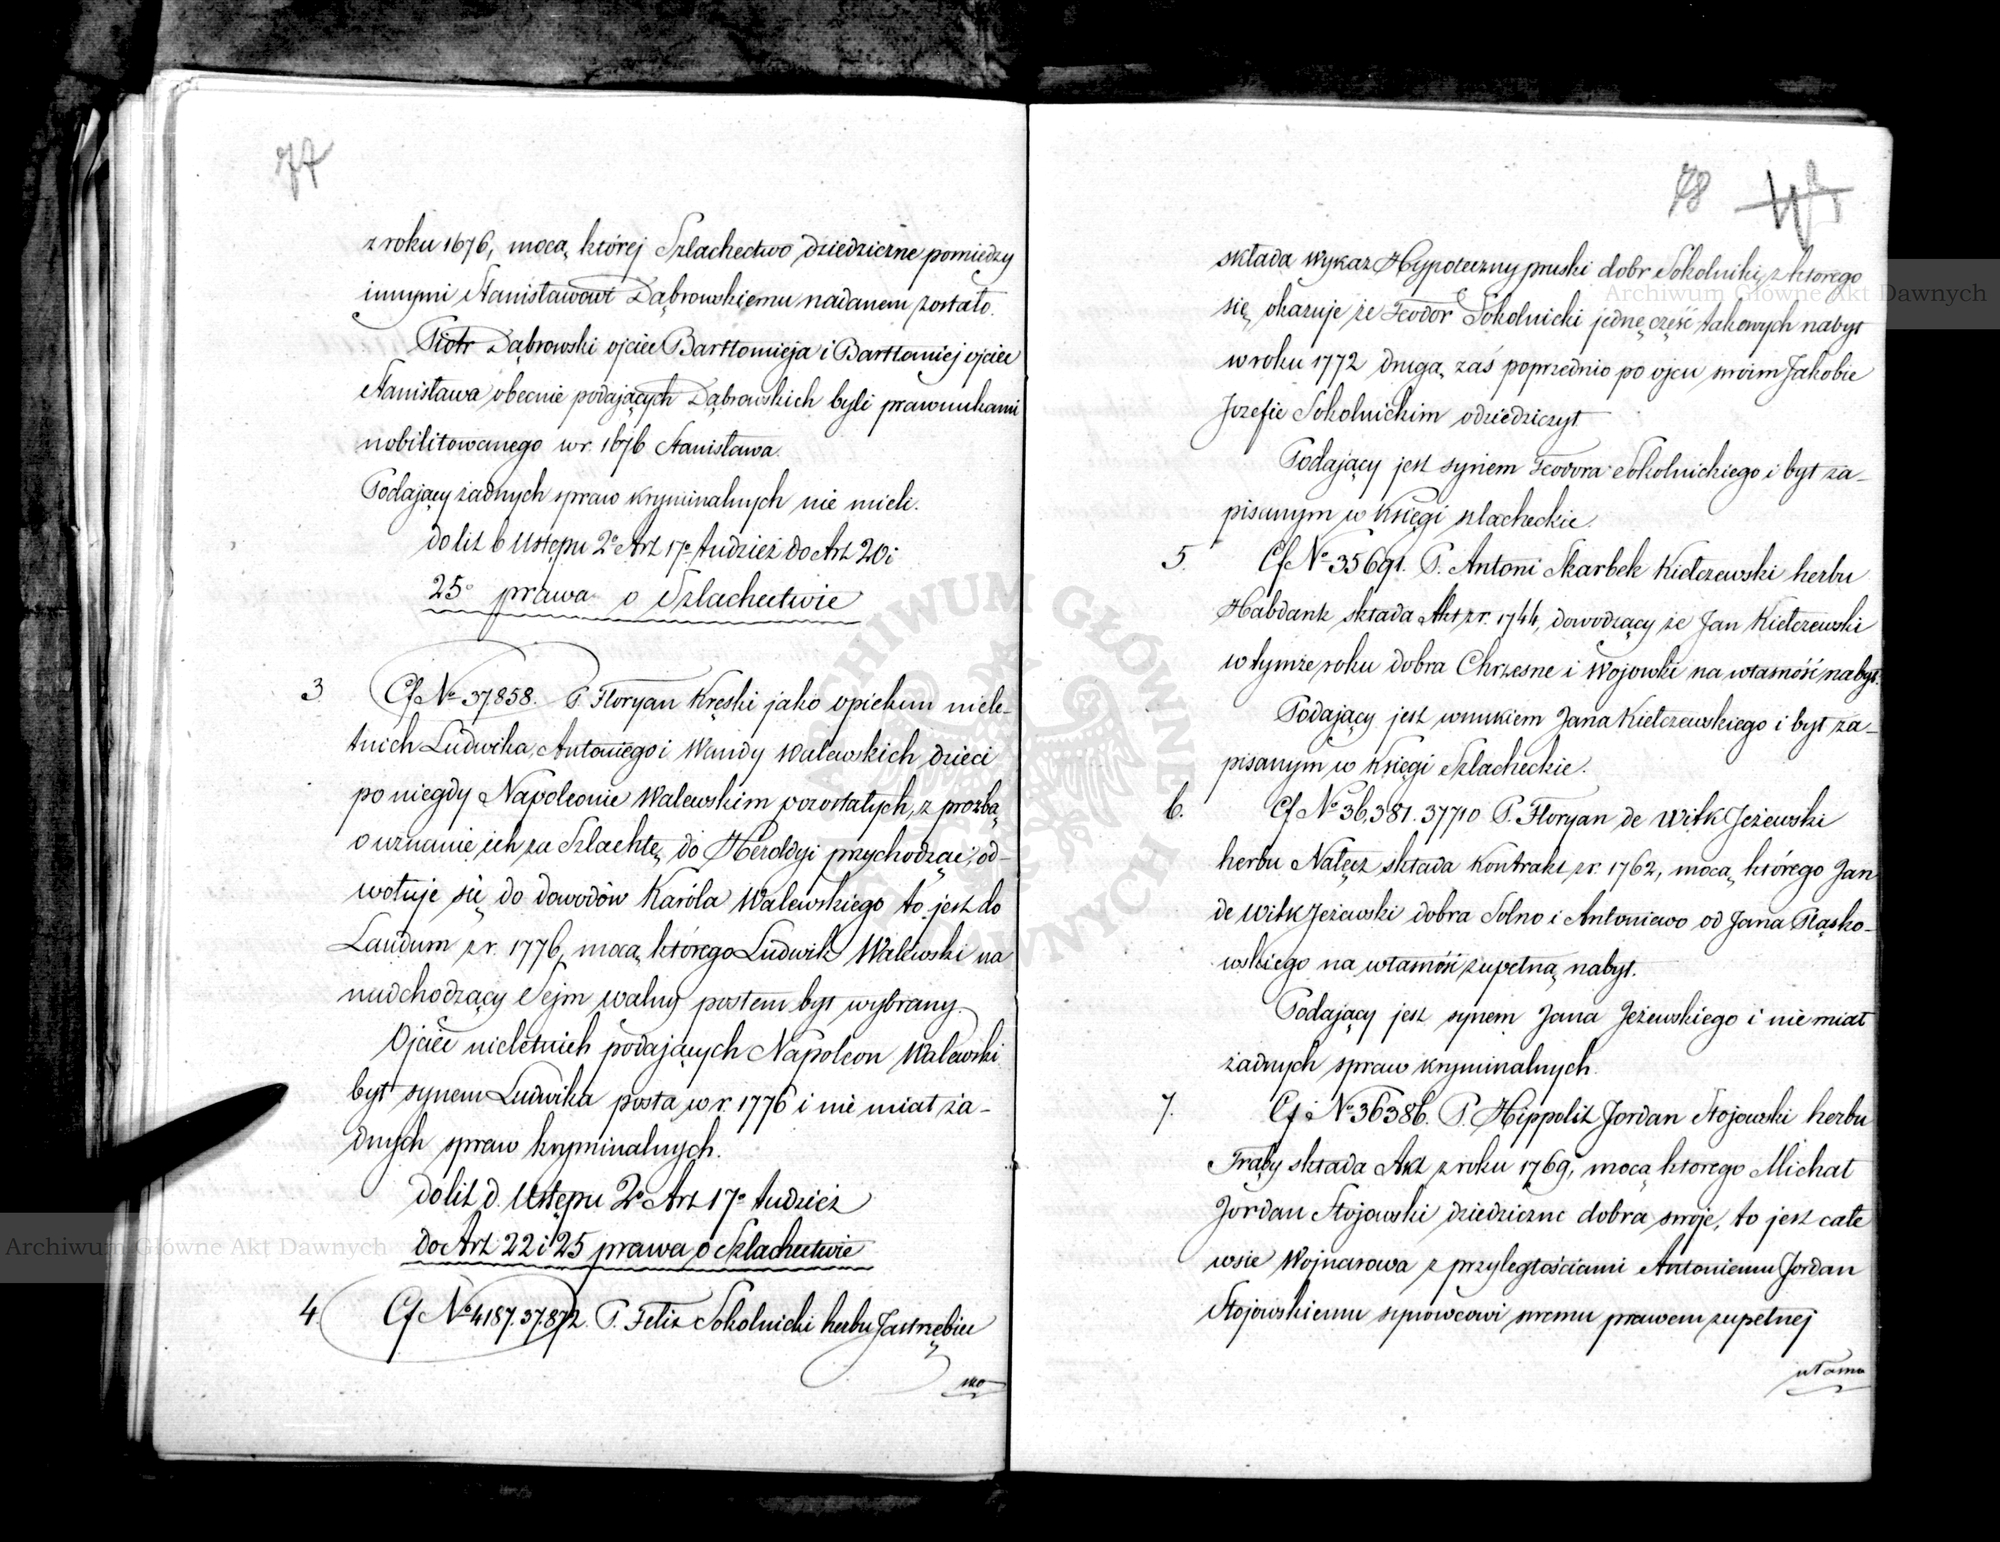 77
z roku 1676, mocą której Szlachectwo dziedziczne pomiędzy
innymi Stanisławowi Dąbrowskiemu nadanem zostało.
Piotr Dąbrowski ojciec Bartłomieja i Bartłomiej ojciec
Stanisława obecnie podających Dąbrowskich byli prawnukami
nobilitowanego w r. 1676 Stanisława.
Podający żadnych spraw kryminalnych nie mieli.
do lit b Ustępu 2º Art 17º tudzież do Art 20 i
25º prawa o Szlachectwie
3 Cf Nº 37858. P. Floryan Kręski jako opiekun niele-
tnich Ludwika, Antoniego i Wandy Walewskich dzieci
po niegdy Napoleonie Walewskim pozostałych, z prozbą
o uznanie ich za Szlachtę do Heroldyi przychodząc, od-
wołuje się do dowodów Karóla Walewskiego to jest do
Laudum z r. 1776, mocą którego Ludwik Walewski na
nadchodzący Sejm walny posłem był wybrany.
Ojciec nieletnich podających Napoleon Walewski
był synem Ludwika posła w r. 1776 i nie miał ża-
dnych spraw kryminalnych.
do lit d. Ustępu 2º Art 17º tudzież
do Art 22 i 25 prawa o Szlachectwie
4. Cf Nº 4187.37872. P. Felix Sokolnicki herbu Jastrzębiec
skła
78
składa wykaz Hypoteczny pruski dobr Sokolniki, z ktorego
się okazuje że Teodor Sokolnicki jednę część takowych nabył
w roku 1772 drugą zaś poprzednio po ojcu swoim Jakobie
Jozefie Sokolnickim odziedziczył
Podający jest synem Teodora Sokolnickiego i był za-
pisanym w Księgi szlacheckie.
5. Cf Nº 35691. P. Antoni Skarbek Kiełczewski herbu
Habdank składa Akt z r. 1744, dowodzący że Jan Kiełczewski
w tymże roku dobra Chrzesne i Wojowski na własność nabył.
Podający jest wnukiem Jana Kiełczewskiego i był za-
pisanym w Księgi Szlacheckie.
6. Cf Nº 36,381.37710 P. Floryan de Witk Jeżewski
herbu Nałęcz składa Kontrakt z r. 1762, mocą którego Jan
de Witk Jeżewski dobra Solno i Antoniewo od Jana Pląsko-
wskiego na własność zupełną nabył.
Podający jest synem Jana Jeżewskiego i nie miał
żadnych spraw kryminalnych.
7. Cf Nº 36386. P. Hippolit Jordan Stojowski herbu
Trąby składa Akt z roku 1769, mocą ktorego Michał
Jordan Stojowski dziedziczne dobra swoje, to jest całe
wsie Wojnarowa z przyległościami Antoniemu Jordan
Stojowskiemu synowcowi swemu prawem zupełnej
własno
Archiwum Główne Akt Dawnych
Archiwum Główne Akt Dawnych
ARCHIWUM GŁÓWNE AKT DAWNYCH